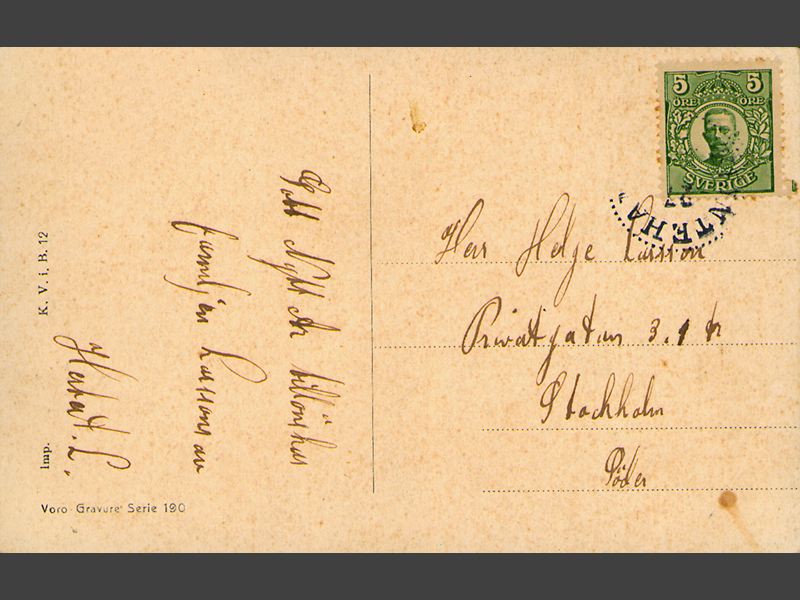 5 5
ÖRE ÖRE
SVERIGE
NTEHA
Herr Helge Larsson
Privatgatan 3. 1 tr
Stockholm
Söder
Gott Nytt År tillönskas
familjen Larssons av
Herbert. L.
K. V. i. B. 12
Imp.
Voro Gravure Serie 190